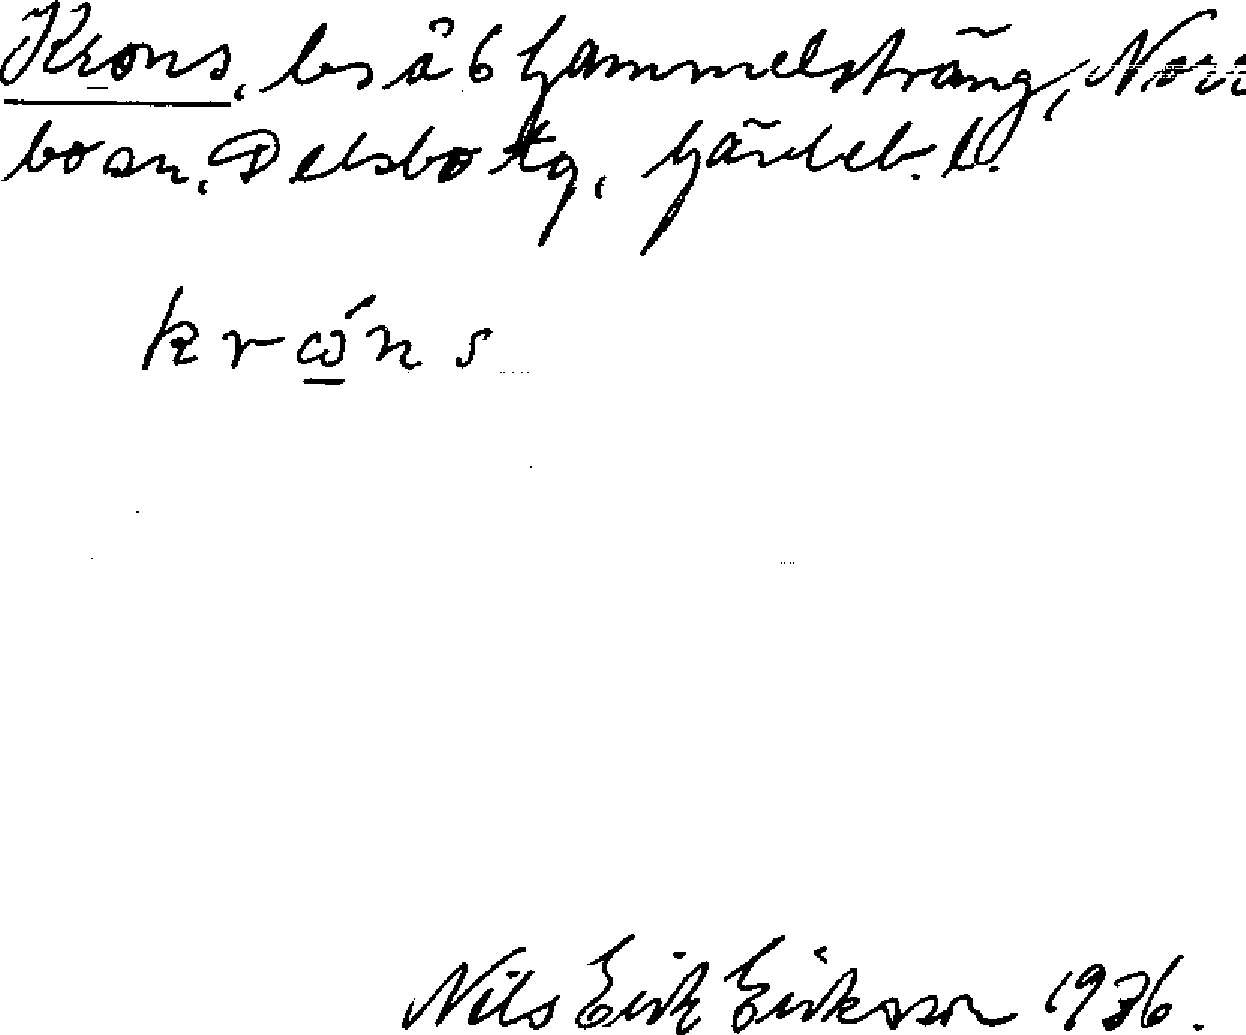 Krons, bs å 6 Gammelsträng, Norr
bo sn, Delsbo tg, Gävleb. l.
krώ̲ns
Nils Erik Eriksson 1936.